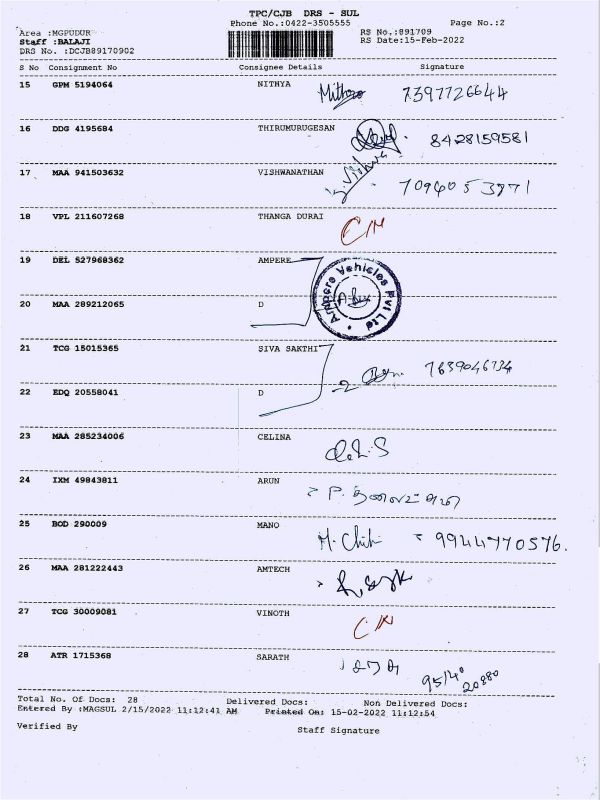 TPC/CJB DRS - SUL
Phone No.:0422-3505555 Page No.:2
Area :MGPUDUR RS No.:891709
Staff :BALAJI RS Date:15-Feb-2022
DRS No. :DCJB89170902
S No Consignment No Consignee Details Signature
15 GPM 5194064 NITHYA 7397726644
16 DDG 4195684 THIRUMURUGESAN 8428159581
17 MAA 941503632 VISHWANATHAN
18 VPL 211607268 THANGA DURAI C/N
19 DEL 527968362 AMPERE Ampere Vehicles Pvt Ltd
20 MAA 289212065 D
21 TCG 15015365 SIVA SAKTHI 7639046734
22 EDQ 20558041 D
23 MAA 285234006 CELINA
24 IXM 49843811 ARUN
25 BOD 290009 MANO 9944770576.
26 MAA 281222443 AMTECH
27 TCG 30009081 VINOTH C/N
28 ATR 1715368 SARATH
Total No. Of Docs: 28 Delivered Docs: Non Delivered Docs:
Entered By :MAGSUL 2/15/2022 11:12:41 AM Printed On: 15-02-2022 11:12:54
Verified By Staff Signature